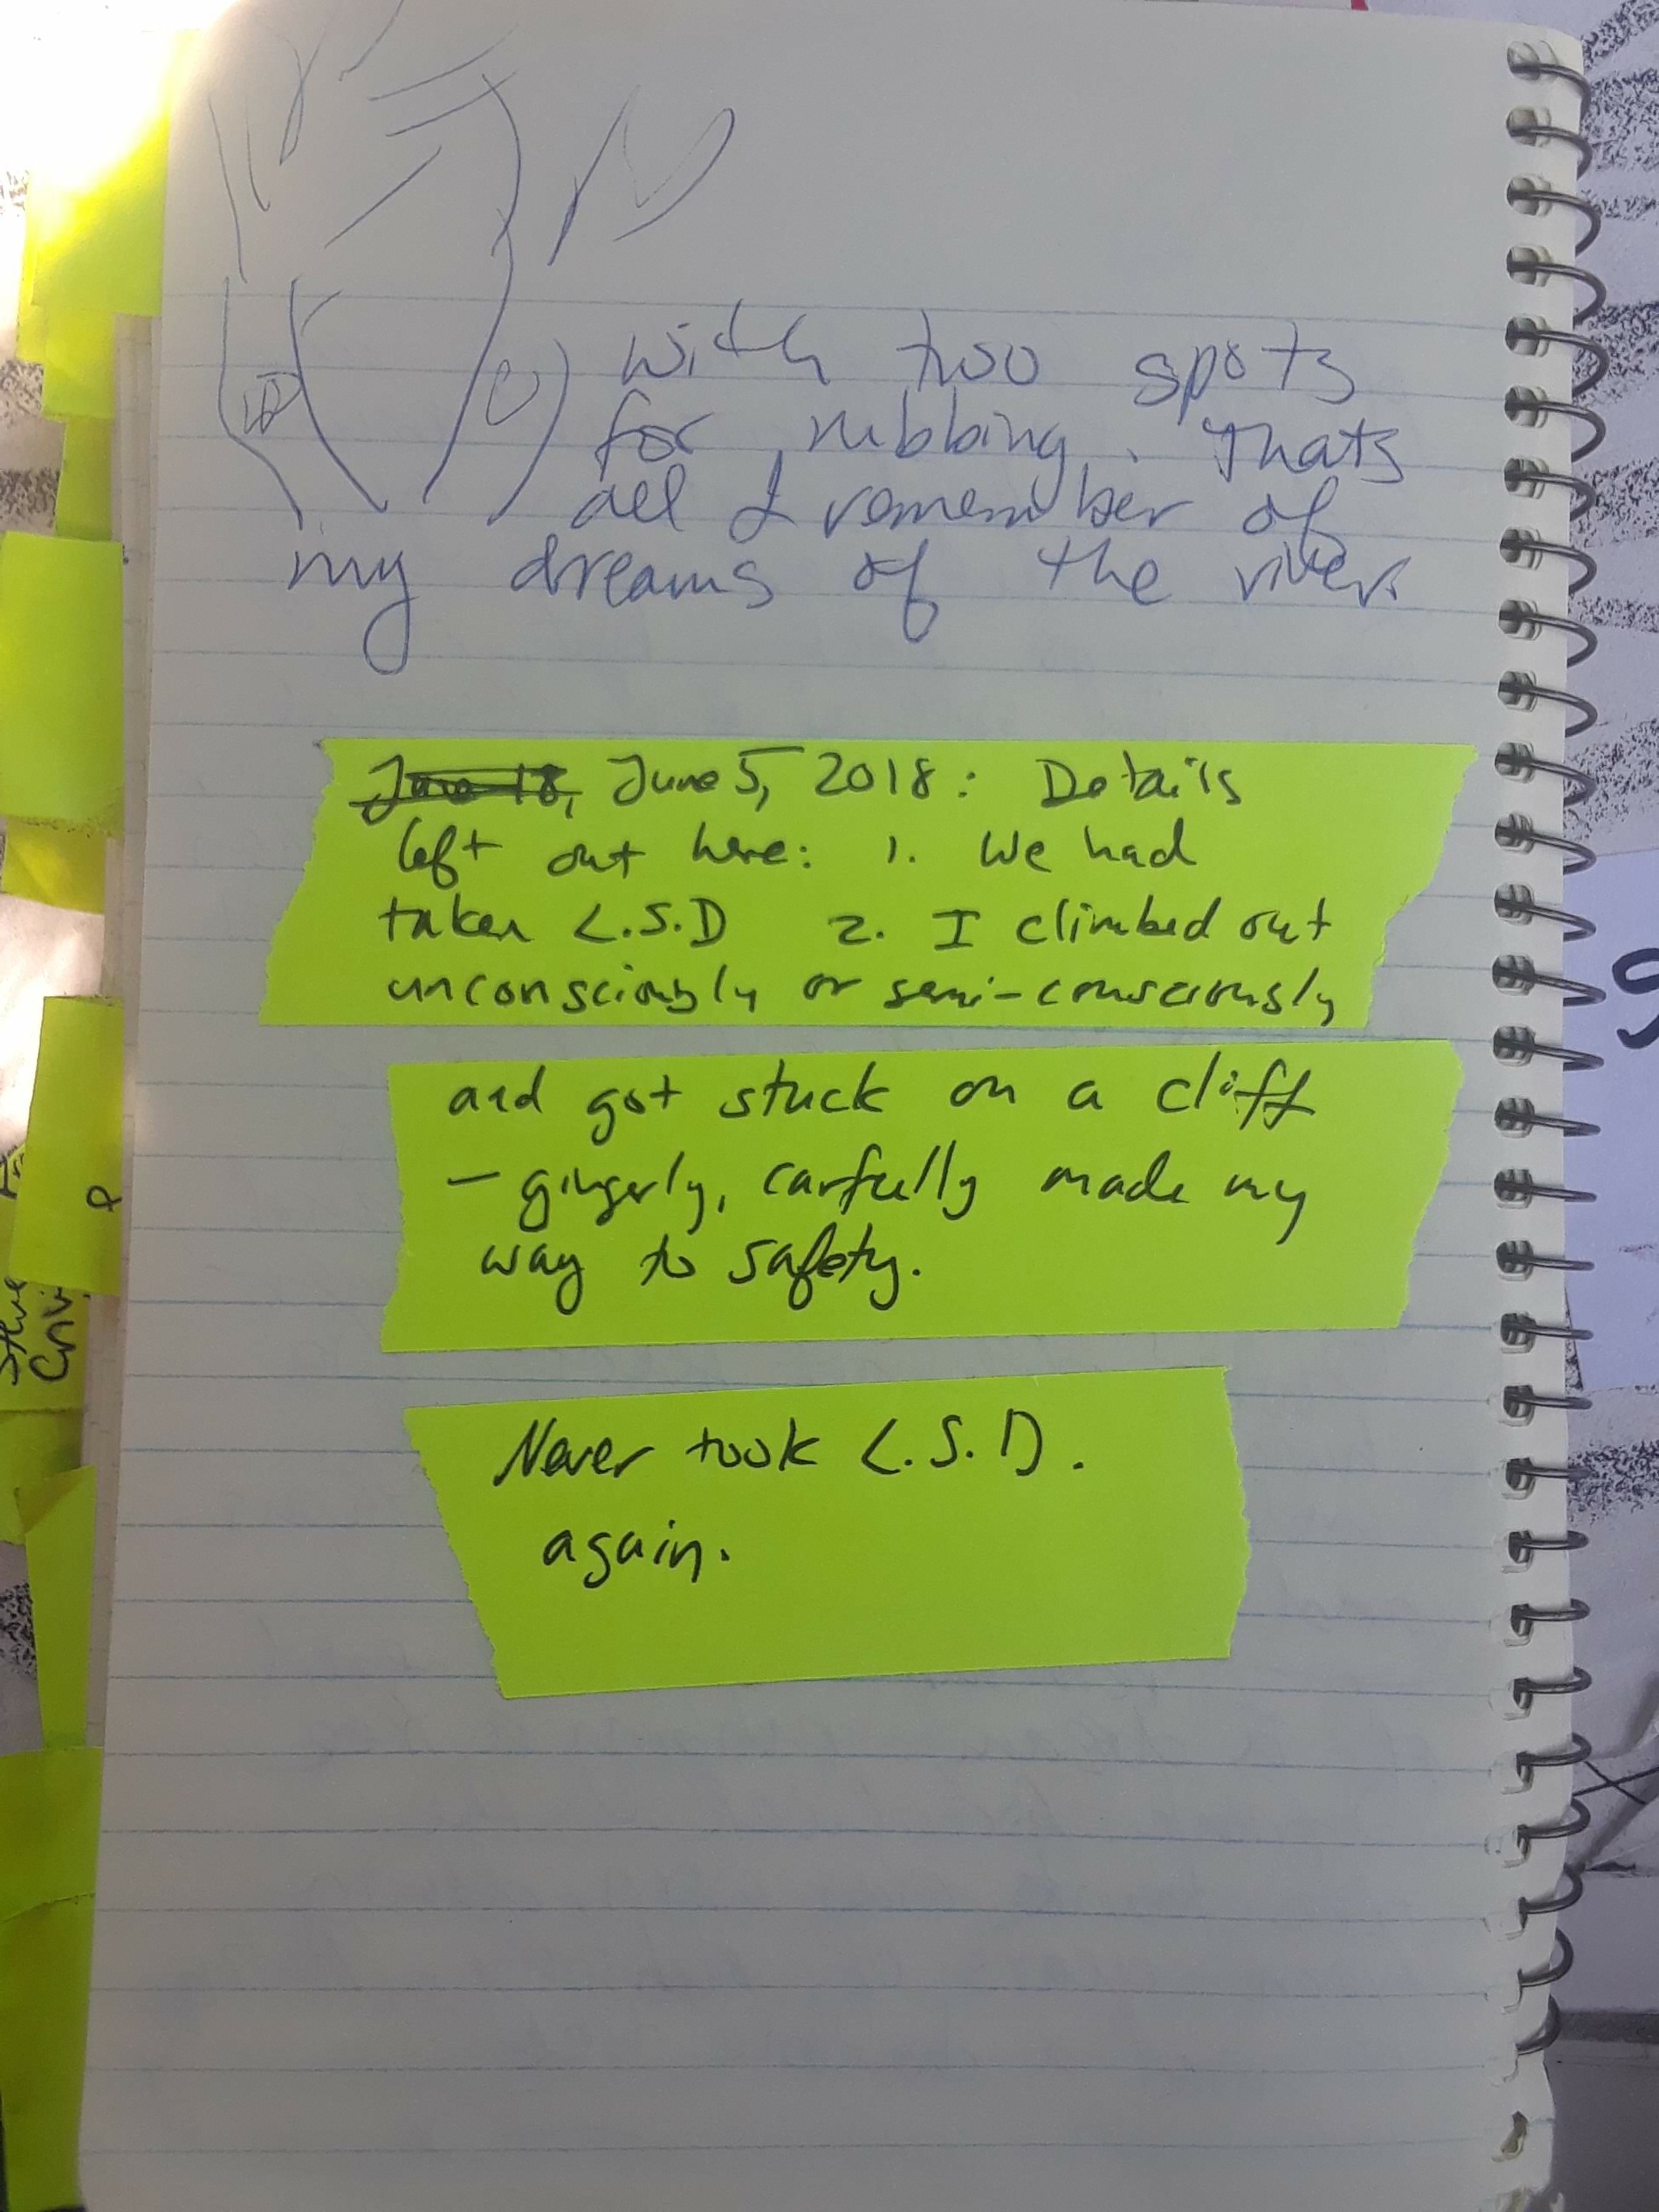 with two spots
for rubbing. Thats
all I remember of
my dreams of the river.
June 5, 2018: Details
left out here: 1. We had
taken L.S.D 2. I climbed out
unconsciously or semi-consciously
and got stuck on a cliff
- gingerly, carfully made my
way to safety.
Never took L.S.D.
again.